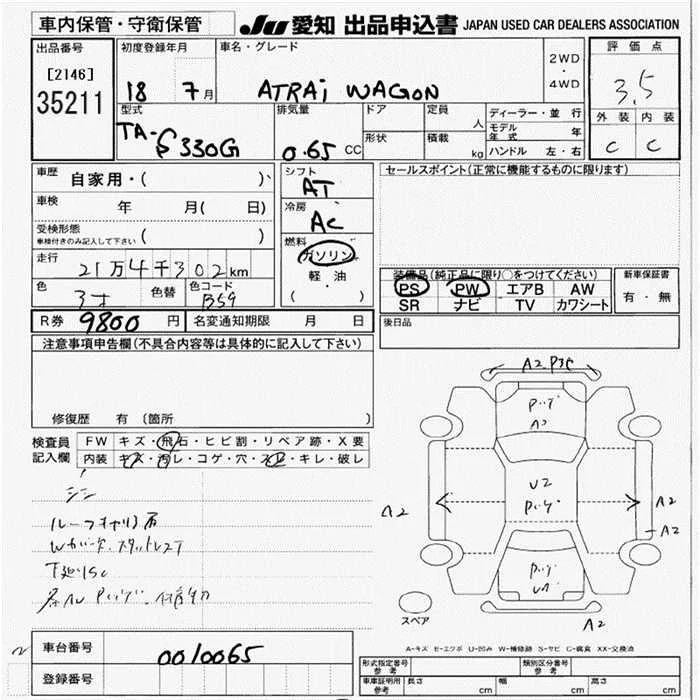 車内保管・守衛保管
JU 愛知 出品申込書 JAPAN USED CAR DEALERS ASSOCIATION
出品番号
[2146]
35211
初度登録年月
18 7月
車名・グレード
ATRAi WAGON
2WD
・
4WD
評価点
3.5
外装 内装
C C
型式
TA-S330G
排気量
0.65 CC
ドア
形状
定員
人
積載
kg
ディーラー・並行
モデル年式 年
ハンドル 左・右
車歴 自家用・( )
車検 年 月( 日)
受検形態
車検付きのみ記入して下さい ( )
走行 21万4千302km
色 色替 色コード
B59
シフト
AT
冷房
AC
燃料
ガソリン
軽・油
( )
セールスポイント(正常に機能するものに限ります)
装備品(純正品に限り○をつけてください)
PS PW エアB AW
SR ナビ TV カワシート
新車保証書
有・無
R券 9800円 名変通知期限 月 日
後日品
注意事項申告欄(不具合内容等は具体的に記入して下さい)
修復歴 有 〔箇所 〕
検査員
記入欄
FW キズ・飛石・ヒビ割・リペア跡・X要
内装 キズ・汚レ・コゲ・穴・スレ・キレ・破レ
A2
A2
U2
A2
A2
A2
A2
スペア
A-キズ E-エクボ U-凹み W-補修跡 S-サビ C-腐食 XX-交換済
車台番号 0010065
登録番号
形式指定番号
参考
類別区分番号
参考
車庫証明用
参考
長さ cm 幅 cm 高さ cm